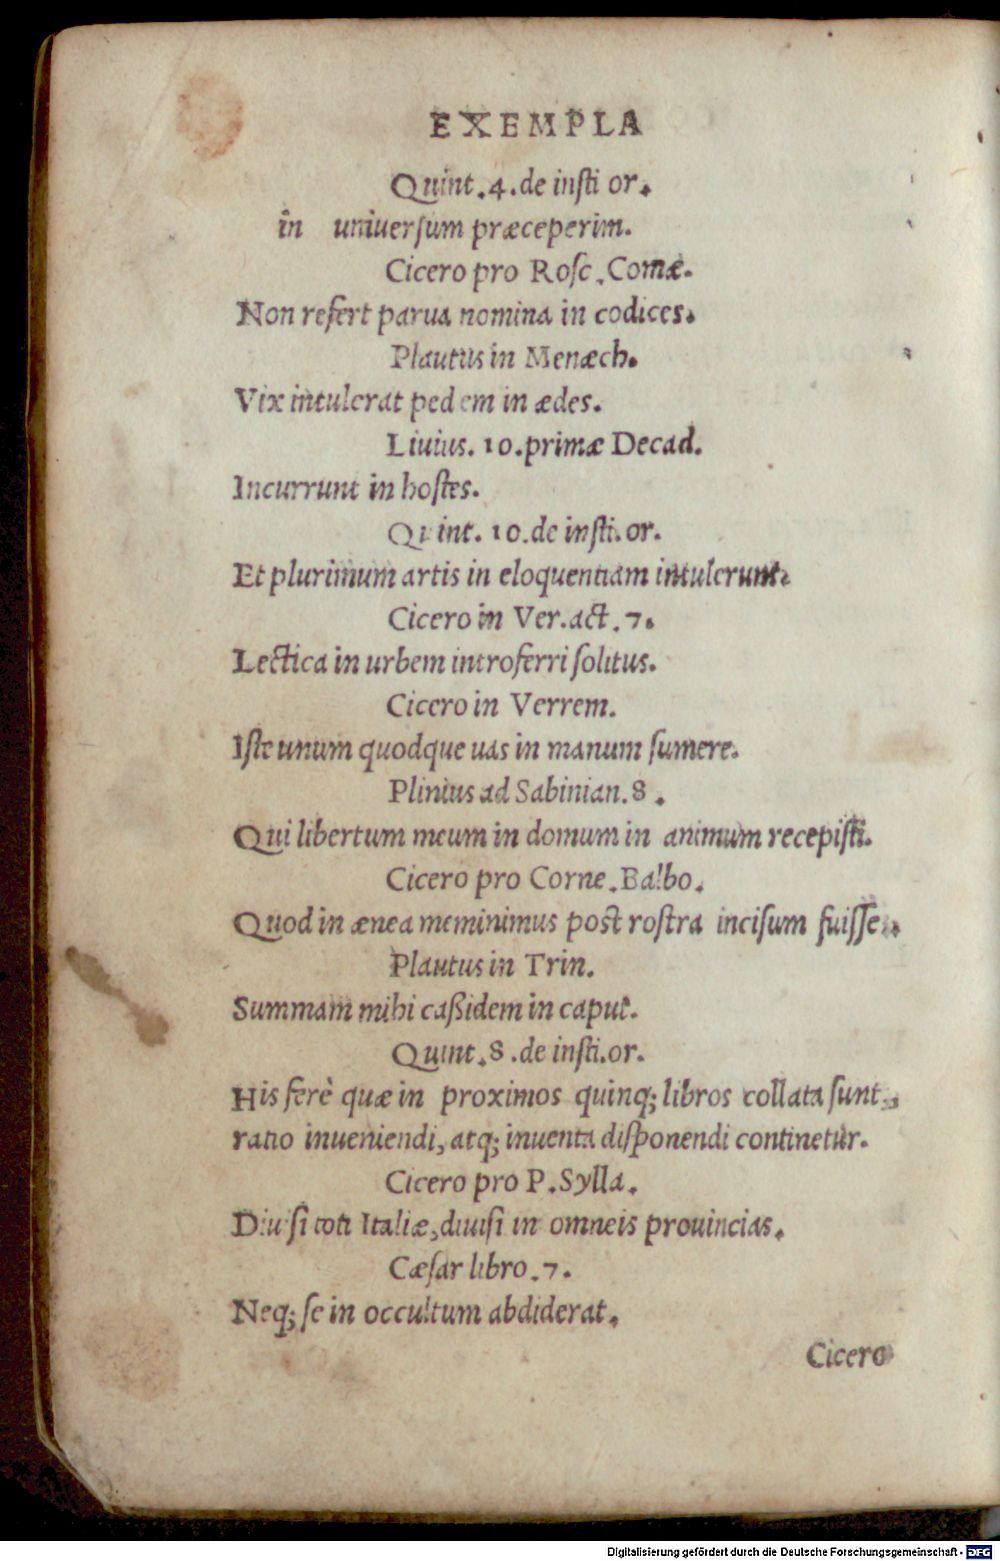 EXEMPLA
Quint.4.de insti or.
in uniuersum præceperim.
Cicero pro Rosc.Comæ.
Non refert parua nomina in codices.
Plautus in Menæch.
Vix intulerat pedem in ædes.
Liuius. 10.primæ Decad.
Incurrunt in hostes.
Quint. 10.de insti.or.
Et plurimum artis in eloquentiam intulerunt.
Cicero in Ver.act.7.
Lectica in urbem introferri solitus.
Cicero in Verrem.
Iste unum quodque uas in manum sumere.
Plinius ad Sabinian.8.
Qui libertum meum in domum in animum recepisti.
Cicero pro Corne.Balbo.
Quod in ænea meminimus post rostra incisum fuisse.
Plautus in Trin.
Summam mihi caßidem in caput.
Quint.8.de insti.or.
His ferè quæ in proximos quinq; libros collata sunt,
ratio inueniendi, atq; inuenta disponendi continetur.
Cicero pro P.Sylla.
Diuisi toti Italiæ, diuisi in omneis prouincias.
Cæsar libro.7.
Neq; se in occultum abdiderat.
Cicero
Digitalisierung gefördert durch die Deutsche Forschungsgemeinschaft - DFG